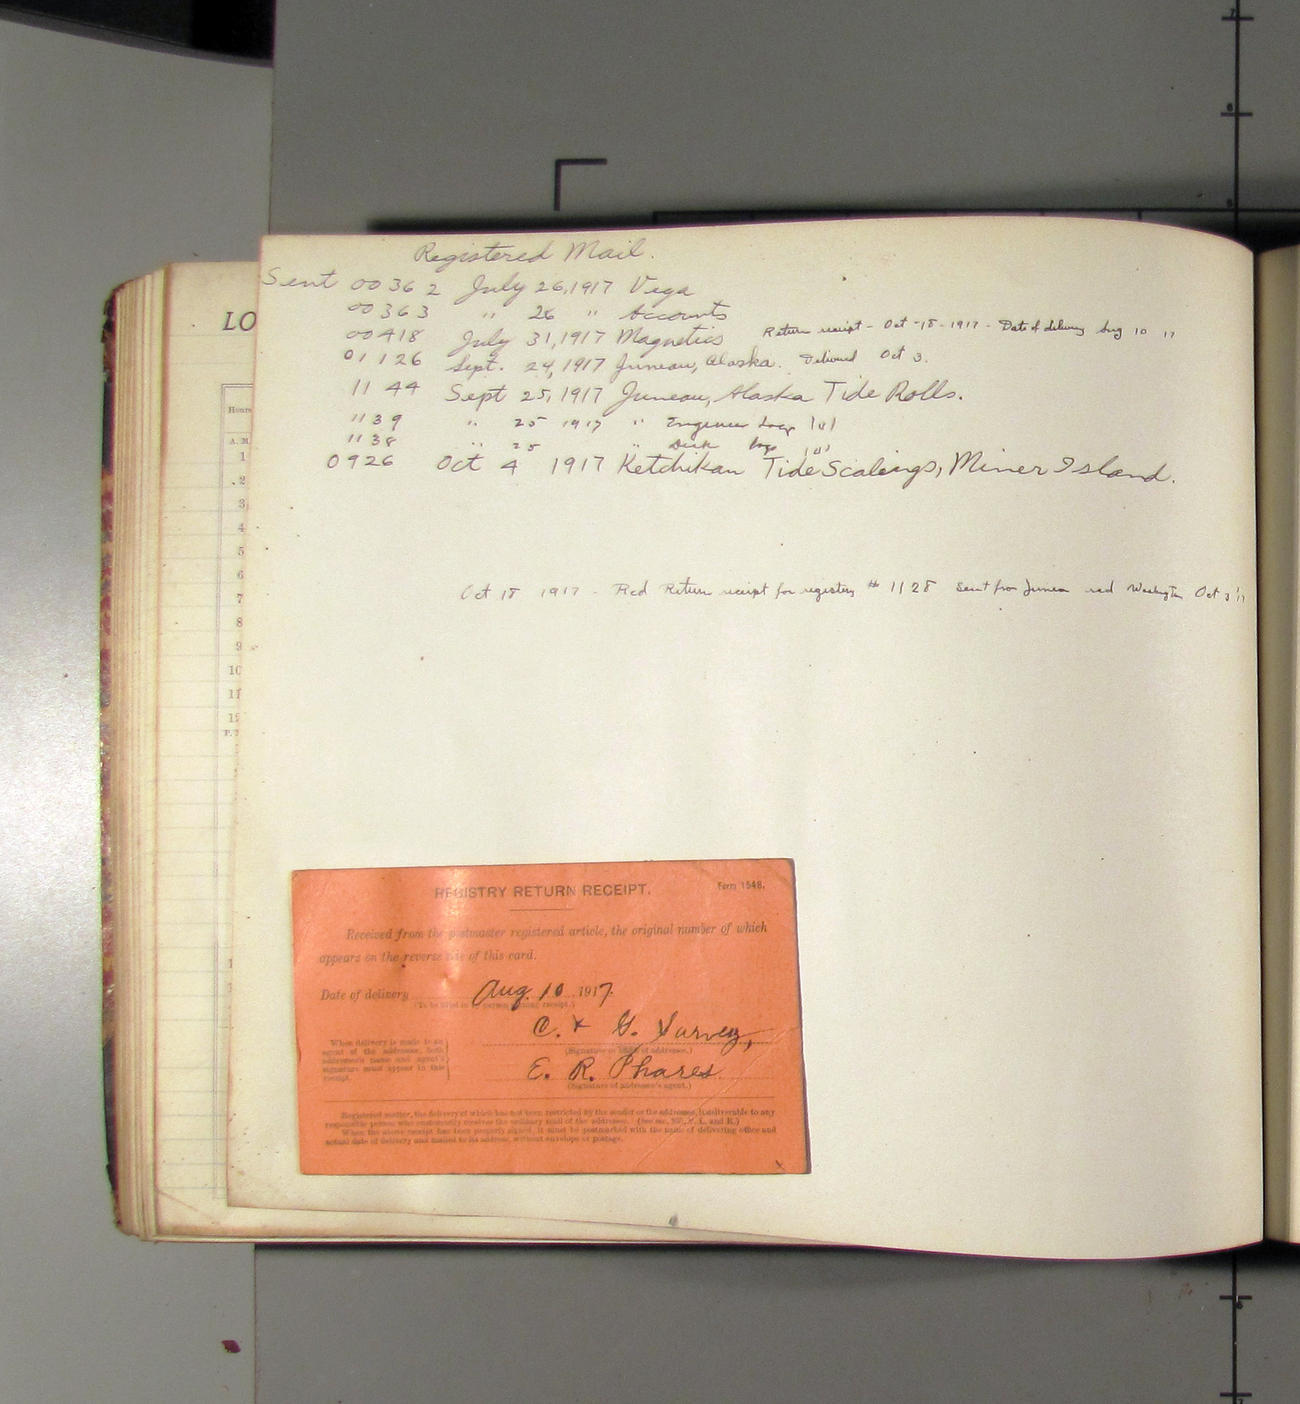 Registered Mail.
Sent 00362 July 26, 1917 Vega
00363 " 26 " Accounts
00418 July 31, 1917 Magnetics Return receipt - Oct - 18 - 1917 - Date of delivery Aug 10 17
01126 Sept. 24, 1917 Juneau, Alaska. Delivered Oct 3.
1144 Sept 25, 1917 Juneau, Alaska Tide Rolls.
1139 " 25 1917 " Engineer Logs
1138 " 25 " Deck logs
0926 Oct 4 1917 Ketchikan Tide Scalings, Miner Island.
Oct 18 1917 - Recd Return receipt for registery # 1128 Sent from Juneau recd Washington Oct 3 '17
LO
Hours
A. M.
1
2
3
4
5
6
7
8
9
10
11
12
REGISTRY RETURN RECEIPT. Form 1548.
Received from the postmaster registered article, the original number of which
appears on the reverse side of this card.
Date of delivery Aug. 10 1917.
(To be filled in by person signing receipt.)
C. & G. Survey,
(Signature or name of addressee.)
E. R. Phares
(Signature of addressee's agent.)
When delivery is made to an
agent of the addressee, both
addressee's name and agent's
signature must appear in this
receipt.
Registered matter, the delivery of which has not been restricted by the sender or the addressee, is deliverable to any
responsible person who customarily receives the ordinary mail of the addressee. (See sec. P. L. and R.)
When the above receipt has been properly signed, it must be postmarked with the name of delivering office and
actual date of delivery and mailed to its address, without envelope or postage.